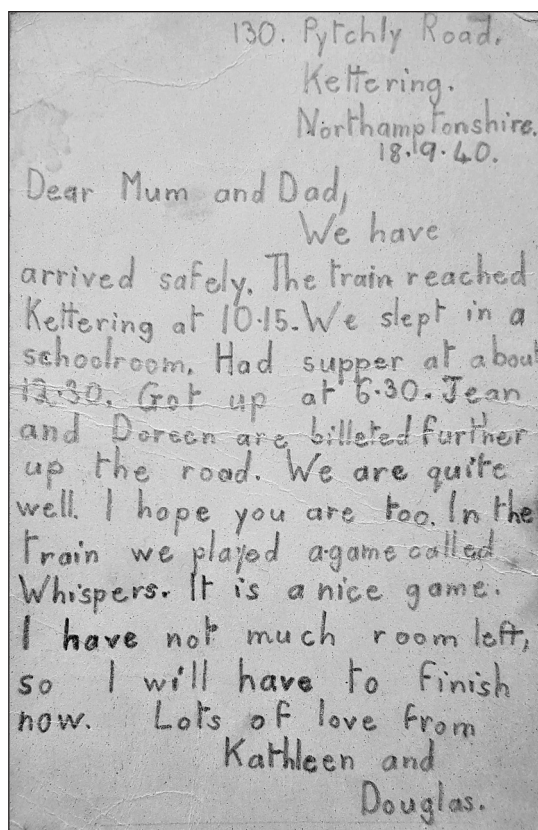 130. Pytchly Road.
Kettering.
Northamptonshire.
18.9.40.
Dear Mum and Dad,
We have
arrived safely. The train reached
Kettering at 10.15. We slept in a
schoolroom. Had supper at about
12.30. Got up at 6.30. Jean
and Doreen are billeted further
up the road. We are quite
well. I hope you are too. In the
train we played a game called
Whispers. It is a nice game.
I have not much room left,
so I will have to finish
now. Lots of love from
Kathleen and
Douglas.